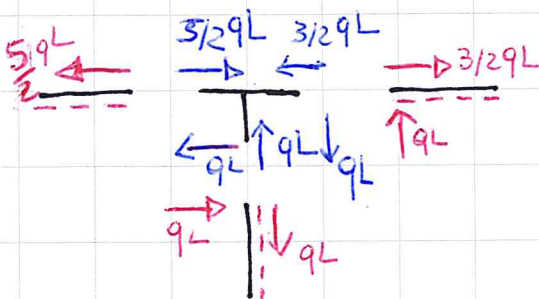 5/2 qL
5/2qL 3/2qL
3/2qL
qL qL qL
qL
qL qL